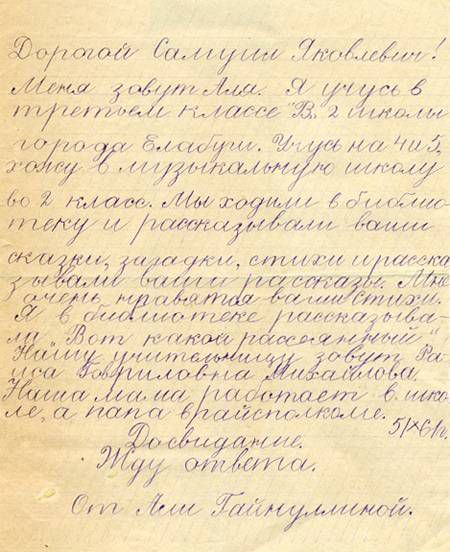 Дорогой Самуил Яковлевич!
Меня зовут Аля. Я учусь в
третьем классе "В" 2 школы
города Елабуги. Учусь на 4 и 5,
хожу в музыкальную школу
во 2 класс. Мы ходили в библио-
теку и рассказывали ваши
сказки, загадки, стихи и расска
зывали ваши рассказы. Мне
очень нравятся ваши стихи.
Я в библиотеке рассказыва-
ла "Вот какой рассеянный"
Нашу учительницу зовут Ра-
иса Гавриловна Михайлова.
Наша мама работает в шко-
ле, а папа в райсполкоме.
5/X 61г.
Досвидание.
Жду ответа.
От Али Гайнуллиной.